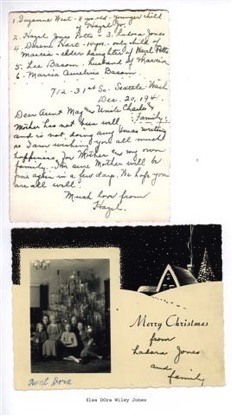 1. Suzanne West - 8 years - younger child
of Hazel Jr.
2. Hazel Joyce Potts  3. Ladora Jones
4. Dorene Hart - 10 yrs. only child of
Maxia - elder daughter of Hazel Potts
5. Lee Basom, husband of Maxia
6. Maxia Aurelius Basom
712 - 31st So. Seattle, Wash.
Dec. 20, 194
Dear Aunt Mag & Uncle Charlie &
Family:
Mother has not been well,
and is not doing any Xmas writing
so I am wishing you all much
happiness for Mother & my own
family. I'm sure Mother will be
fine again in a few days. We hope you
are all well.
Much love from
Hazel.
Merry Christmas
from
Ladora Jones
and
family
Dora
Elsa DOra Wiley Jones